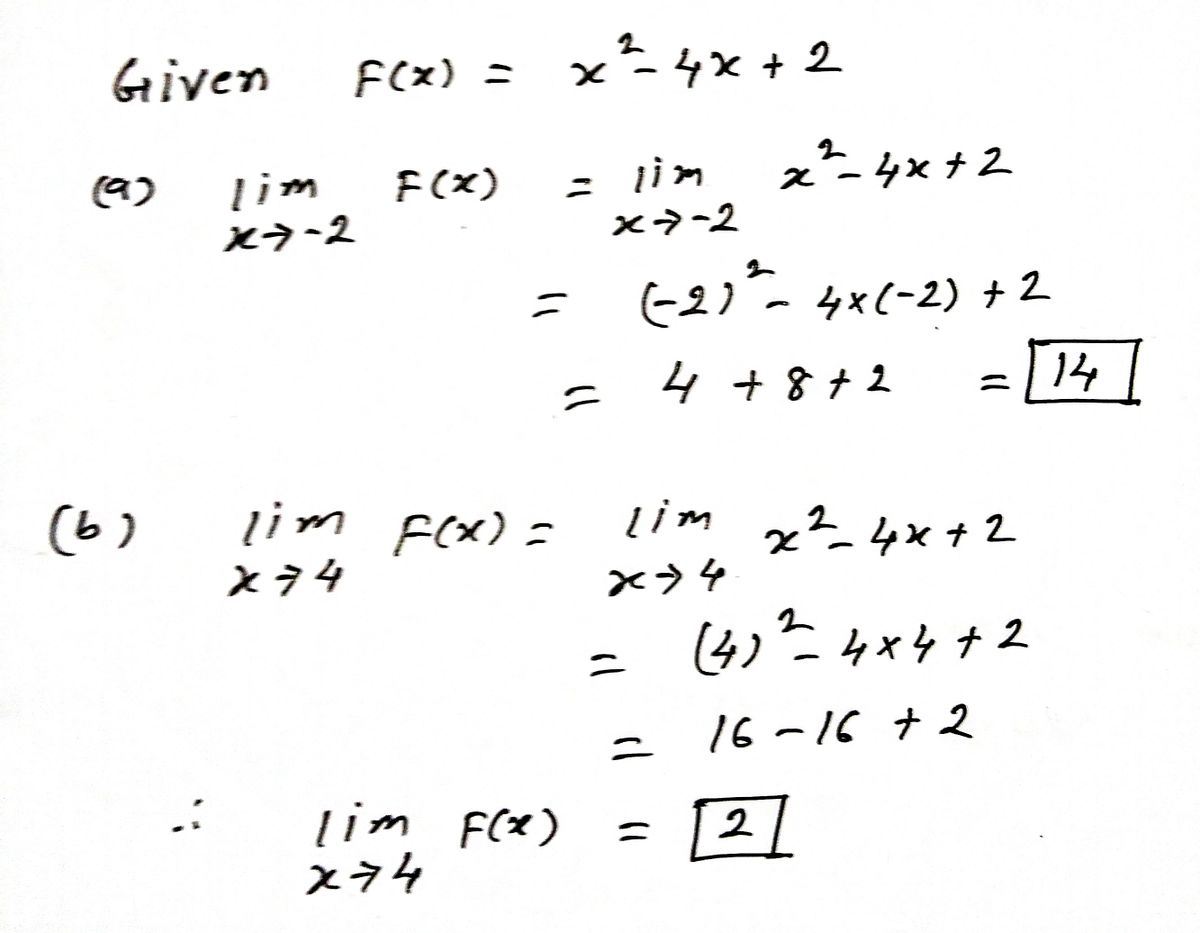 Given F(x) = x² - 4x + 2
(a) lim F(x) = lim x² - 4x + 2
x→-2 x→-2
= (-2)² - 4×(-2) + 2
= 4 + 8 + 2 = 14
(b) lim F(x) = lim x² - 4x + 2
x→4 x→4
= (4)² - 4×4 + 2
= 16 - 16 + 2
∴ lim F(x) = 2
x→4